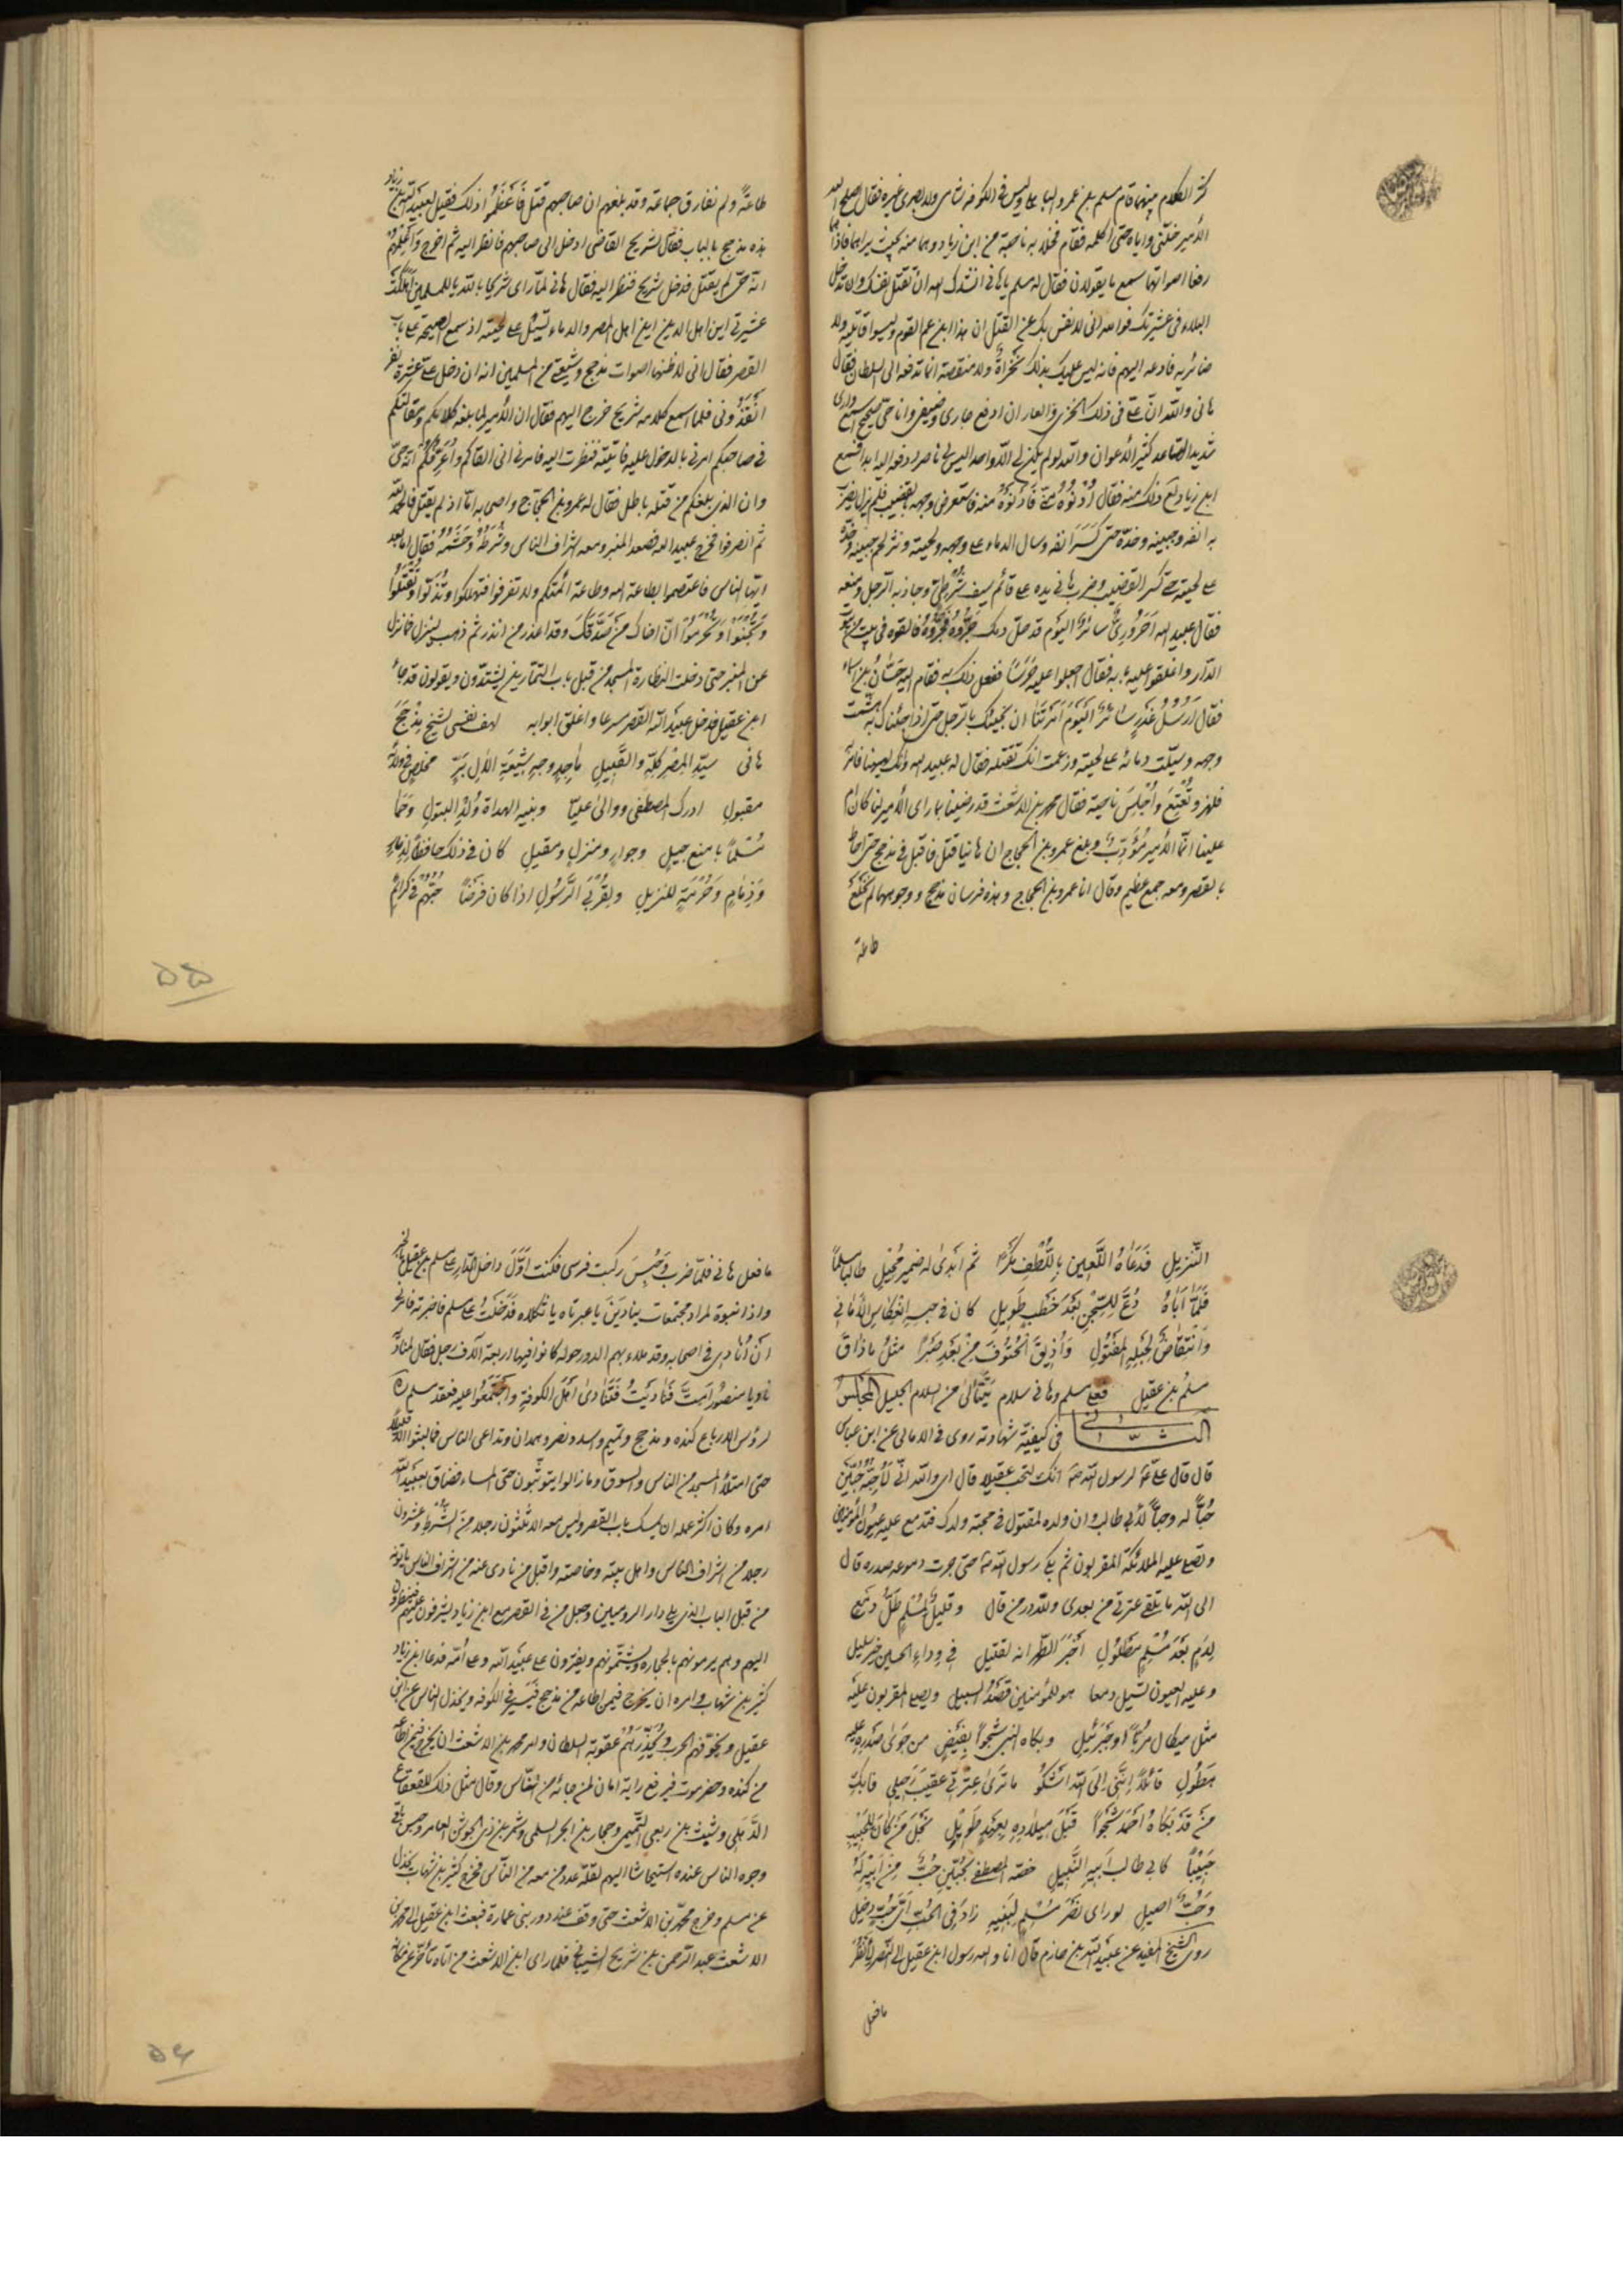 كثر الكلام بينهما قام مسلم بن عمرو الباهلي وليس في الكوفة شامي ولا بصري غيره فقال اصلح الله
الأمير خلّني واياه حتى اكلمه فقام فخلا به ناحية من ابن زياد وهما منه بحيث يراهما فاذا
رفعا اصواتهما سمع ما يقولان فقال له مسلم يا هاني انشدك الله ان تقتل نفسك وان تدخل
البلاء في عشيرتك فوالله اني لانفس بك عن القتل ان هذا ابن عم القوم وليسوا قاتليه ولا
ضائريه فادفعه اليهم فانه ليس عليك بذلك مخزاة ولا منقصة انما تدفعه الى السلطان فقال
هاني والله انّ عليّ في ذلك الخزي والعار ان ادفع جاري وضيفي وانا حيّ صحيح اسمع وارى
شديد الساعد كثير الأعوان والله لو لم يكن لي الّا واحد ليس لي ناصر لم ادفعه اليه ابدا فسمع
ابن زياد لع ذلك منه فقال اُدْنُوهُ منّي فَاَدْنَوْهُ منه فاستعرض وجهه بالقضيب فلم يزل يضرب
به انفه وجبينه وخدّه حتى كَسَرَ انفه وسال الدماء على وجهه ولحيته ونثر لحم جبينه وخدّه
على لحيته حتى كسر القضيب وضرب هاني يده على قائم سيف شُرْطيّ وجاذبه الرجل ومنعه
فقال عبيد الله اَحَرُورِيٌّ سائر اليوم قد حلّ دمك جُرُّوهُ فَجَرُّوهُ فالقوه في بيت من بيوت
الدار واغلقوا عليه بابه فقال اجعلوا عليه حَرَسًا ففعل ذلك به فقام اليه حسّان بن اسماء
فقال اَرُسُلُ غَدْرٍ سائر اليَوْمَ اَمَرْتَنا ان نجيئك بالرّجل حتى اذا جئناك به هشمت
وجهه وسيّلت دمائه على لحيته وزعمت انك تقتله فقال له عبيد الله وانك لهيهنا فامر به
فلهز وتُعْتِعَ واُجْلِسَ ناحية فقال محمد بن الاشعث قد رضينا بما راى الأمير لنا كان ام
علينا انّما الأمير مُؤَدِّبٌ وبلغ عمرو بن الحجاج ان هانيا قتل فاقبل في مذحج حتى احاط
بالقصر ومعه جمع عظيم وقال انا عمرو بن الحجاج وهذه فرسان مذحج ووجوهها لم نخلع
طاعة
طاعةً ولم نفارق جماعة وقد بلغهم ان صاحبهم قتل فَاَعْظَمُوا ذلك فقيل لعبيد الله بن زياد
هذه مذحج بالباب فقال لشريح القاضي ادخل الى صاحبهم فانظر اليه ثم اخرج وَاَعْلِمْهُمْ
انه حيّ لم يقتل فدخل شريح فنظر اليه فقال هاني لمّا راى شريحا يا لله يا للمسلمين اَهَلَكَتْ
عشيرتي اين اهل الدين اين اهل المصر والدماء تسيل على لحيته اذ سمع الصيحة على باب
القصر فقال اني لاظنها اصوات مذحج وشيعتي من المسلمين انه ان دخل عليّ عشرة نفر
انْقَذُوني فلما سمع كلامه شريح خرج اليهم فقال ان الأمير لما بلغه كلامكم ومقالتكم
في صاحبكم امرني بالدخول عليه فاتيته فنظرت اليه فامرني ان القاكم وأُعَرِّفَكُمْ انّه حيّ
وان الذي بلغكم من قتله باطل فقال له عمرو بن الحجاج واصحابه امّا اذ لم يقتل فالحمد لله
ثم انصرفوا فخرج عبيد الله فصعد المنبر ومعه اشراف الناس وشُرَطُهُ وحَشَمُهُ فقال اما بعد
ايّها الناس فاعتصموا بطاعة الله وطاعة ائمتكم ولا تفرقوا فتهلكوا وتُذَلّوا وتُقْتَلُوا
وَتُجْفَوْا وَتُحْرَمُوا انّ اخاك مَنْ صَدَقَكَ وقد اعذر من انذر ثم ذهب لينزل فما نزل
عن المنبر حتى دخلت النظارة المسجد من قبل باب التمّارين يشتدّون ويقولون قد جاء
ابن عقيل فدخل عبيد الله القصر سرعا واغلق ابوابه لهف نفسي لشيخ مذحج
هاني سيّد المِصْرِ كلّهِ والقَبيلِ ماجدٍ وجهِ شيعَةِ الآلِ بَرٍّ مخلصٍ في ولاءه
مقبول ادرك المصطفى ووالى عليّا وبنيه الهداة وُلْدِ البتولِ وَحَمَا
مُسْلماً بامنع جيل وجوارٍ ومنزلٍ ومقيلِ كان في ذلك حافظاً لذِمارٍ
وَذِمَامٍ وَحُرْمَةٍ للنزيلِ وبقُرْبَى الرَّسُولِ اذا كان فَرضًا حُبُّهُم في كرائم
۵۵
التَّنْزيلِ فَدَعَاهُ اللَّعين باللُّطْفِ مَكْرًا ثم اَبْدى له ضمير مُحيلِ طالبا مسلماً
فَلَمّا اَبَاهُ دُعَّ لِلسّجْنِ بَعْدَ خَطْبٍ طَوِيلِ كان في حبسِهِ انْعِكَاسِ الأماني
وانْتِقَاضُ لِحَبْلِهِ المَفْتُولِ وَاُذِيقَ الْحُتُوفَ مِنْ بَعْدِ صَبْرًا مثلُ ما ذاق
مسلمُ بن عقيل فعلى مسلم وهاني سلام يَتَتَالَى من السلام الجليل المجلس
الثاني في كيفيّة شهادته روى في الامالي عن ابن عباس
قال قال علي ع لرسول الله ص انّك لتحب عقيلا قال اي والله انّي لَأُحِبُّهُ حُبَّيْن
حُبّاً له وحبّاً لأبي طالب وان ولده لمقتول في محبة ولدك فتدمع عليه عيون المؤمنين
وتصلّي عليه الملائكة المقربون ثم بكى رسول الله ص حتى جرت دموعه على صدره قال
الى الله ما تلقى عترتي من بعدي ولله در من قال وقليلٌ لِمُسْلِمٍ طلُّ دمع
لِدَمٍ بَعْدَ مُسْلِمٍ مَطْلُولِ اَخْبَرَ الطُّهر انه لقتيل في وِدادِ الحسين خير سليل
وعليه العيون تسيل دمعا هو للمؤمنين قصْدُ السبيل ويصلي المقربون عليه
مثل ميكال مَرَّةً وجَبْرَئيلِ وبكاه النبي شَجْواً بفَيضٍ من جَوى صَدْرِهِ عليه
هَطُولِ قائلاً اِنَّنِي اِلى الله اَشْكُو ما ترى عِتْرَتي عقيبَ رَحيلي فابك
مَنْ قَدْ بَكَاهُ اَحْمَدُ شَجْواً قَبْلَ مِيلادِهِ بِعَهْدٍ طَوِيلِ نَجْلَ مَنْ كانَ لِلحَبِيبِ
حَبيباً كابي طالب اَبيهِ النَّبيلِ خصّه المصطفى بحُبَّيْنِ حُبٌّ مِنْ اَبيهِ لَهُ
وَحُبٌّ اصيل لو راى نَصْرَ مُسْلِمٍ لِبَنيهِ زادَ في الحُبِّ اَيَّ حُبٍّ دخيل
روى الشيخ المفيد عن عبد الله بن حازم قال انا والله رسول ابن عقيل الى القصر لِأَنْظُرَ
ما فعل
ما فعل هاني فلمّا ضرب وَحُبِسَ ركبت فرسي فكنت اَوَّلَ داخل الدار على مسلم بن عقيل بالخبر
واذا نسوة لمراد مجتمعات ينادين يا عبرتاه يا ثكلاه فَدَخَلْتُ على مسلم فاخبرته فامرني
اَنْ اُنَادِيَ في اصحابه وقد ملاء بهم الدور حوله كانوا فيها اربعة آلاف رجل فقال لمناديه
ناد يا منصُورُ اَمِتْ فَنادَيْتُ فَتَنَادى اَهْلُ الكوفة واجْتَمَعُوا عليه فعقد مسلم ره
لرؤس الارباع كنده ومذحج وتميم واسد ومضر وهمدان وتداعى الناس فما لبثوا الّا قليلاً
حتى امتلأ المسجد من الناس والسوق وما زالوا يتوثبون حتى المساء فضاق بعبيد الله
امره وكان اكثر عمله ان يمسك باب القصر وليس معه الا ثلثون رجلا من الشُرَط وعشرون
رجلا من اشراف الناس واهل بيته وخاصته واقبل من نادى عنه من اشراف الناس ياتونه
من قبل الباب الذي يلي دار الروميين وجعل من في القصر مع ابن زياد يشرفون عليهم فينظرون
اليهم وهم يرمونهم بالحجارة ويشتمونهم ويفترون على عبيد الله وعلى اُمّه فدعا ابن زياد
كثير بن شهاب وامره ان يخرج فيمن اطاعه من مذحج فيَسيرَ في الكوفة ويخذل الناس عن ابن
عقيل ويخوّفهم الحرب ويُحَذِّرَهُمْ عقوبة السلطان وامر محمد بن الاشعث ان يخرج فيمن اطاعه
من كنده وحضرموت فيرفع راية امان لمن جائه من الناس وقال مثل ذلك للقعقاع
الذُّهَلي وشبث بن ربعي التَّميمي وحجار بن ابجر السلمي وشمر بن ذي الجوشن العامري وحبس باقي
وجوه الناس عنده استيحاشا اليهم لقلّة عدد من معه من النّاس فخرج كثير بن شهاب يخذل
عن مسلم وخرج محمّد بن الاشعث حتى وقف عند دور بني عمارة فبعث ابن عقيل الى محمد بن
الاشعث عبد الرحمن بن شريح الشيباني فلما راى ابن الاشعث من اتاه تأخر عن مكانه
۵۶